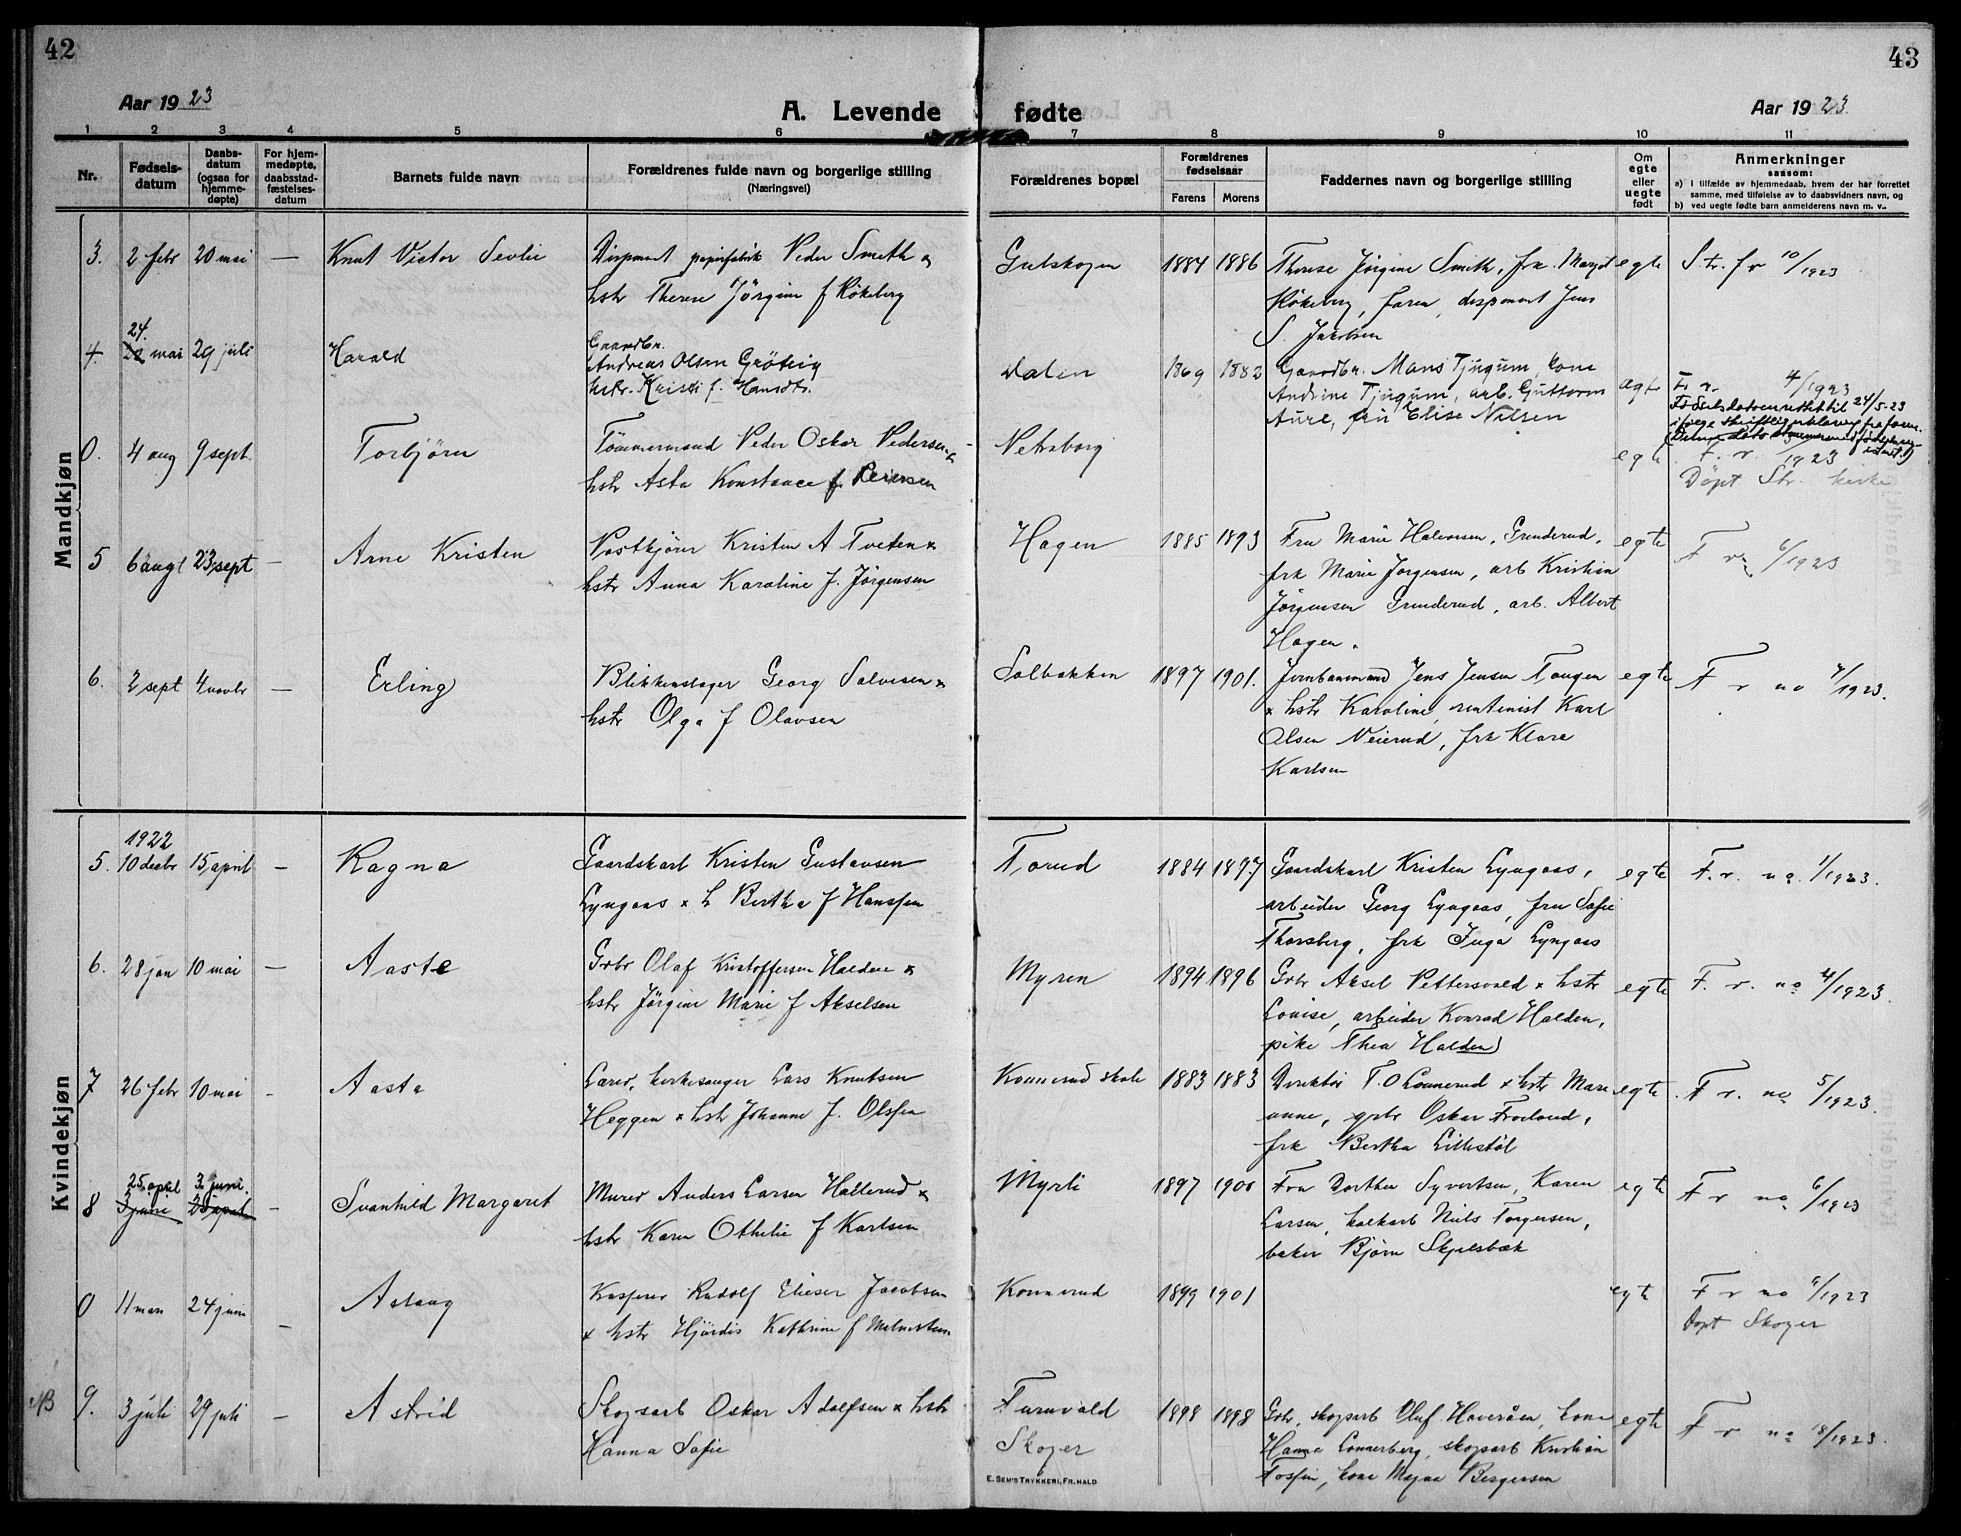 42
43
Aar 1923
A. Levende fødte
Aar 1923
1 2 3 4 5 6 7 8 9 10 11
Nr.
Fødsels-
datum
Daabs-
datum
(ogsaa for
hjemme-
døpte)
For hjem-
medøpte,
daabsstad-
fæstelses-
datum
Barnets fulde navn
Forældrenes fulde navn og borgerlige stilling
(Næringsvei)
Forældrenes bopæl
Forældrenes
fødselsaar
Farens Morens
Faddernes navn og borgerlige stilling
Om
egte
eller
uegte
født
Anmerkninger
saasom:
a) i tilfælde av hjemmedaab, hvem der har forrettet
samme, med tilføielse av to daabsvidners navn, og
b) ved uegte fødte barn anmelderens navn m. v..
Mandkjøn
3. 2 febr 20 mai — Knut Victor Sevlie
Disponent papirfabrik Peder Smith &
hstr Therese Jørgine f Røkeberg
Gulskogen 1884 1886
Therese Jørgine Smith, frk. Margit
Røkeberg, faren, disponent Jens
S. Jakobsen
egte
S. tr. f r 10/1923
24.
4. 22 mai 29 juli Harald
Gaardbr.
Andreas Olsen Grøting
hstr. Kristi f. Hansdtr.
Dalen 1869 1882
Gaardbr. Mons Tjugum, kone
Andrine Tjugum, arb. Guttorm
Aure, fru Elise Nilsen
egte
F. r. 4/1923
Fødselsdatoen rettet til 24/5-23
ifølge skriftlig erklæring fra faren.
0. 4 aug 9 sept. Torbjørn
Tømmermand Peder Oskar Pedersen &
hstr Asta Konstance f. Reiersen
Netaborg
egte
F. r. 1923
Døpt Str. kirke
5 6 augt 23 sept — Arne Kristen
Postkjører Kristen A Tveten &
hstr Anna Karoline f. Jørgensen
Hagen 1885 1893
Fru Marie Halvorsen, Grunderud,
frk Marie Jørgensen, arb Kristian
Jørgensen Grunderud, arb. Albert
Hagen.
egte
F r. 6/1923
6. 2 sept 4 novbr — Erling
Blikkenslager Georg Salvesen &
hstr Olga f Olavsen
Solbakken 1897 1901.
Jernbanemand Jens Jensen Tangen
& hstr Karoline, rentenist Karl
Olsen Veierud, frk Klara
Karlsen
egte
F r no 7/1923.
Kvindekjøn
1922
5. 10 decbr 15 april — Ragna
Gaardskarl Kristen Gustavsen
Lyngaas & h Bertha f Hanssen
Torud 1884 1897
Gaardskarl Kristen Lyngaas,
arbeider Georg Lyngaas, fru Sofie
Thorsberg, frk Inga Lyngaas
egte
F. r. no. 1/1923.
6. 28 jan 10 mai — Aaste
Grbr Olaf Kristoffersen Halden &
hstr Jørgine Marie f Akselsen
Myren 1894 1896
Grbr Aksel Pettersvold & hstr
Louise, arbeider Konrad Halden,
pike Thea Halden
egte
F. r. no 4/1923.
7 26 febr 10 mai - Aasta
Lærer, kirkesanger Lars Knutsen
Heggen & hstr Johanne f. Olsson
Konnerud skole 1883 1883
Direktør T. O Lonnerud & hstr Mari
anne, grbr Oskar Froeland,
frk Bertha Lillestøl
egte
F r. no 5/1923.
25 april 3. juni.
8 3 juni 25 april - Svanhild Margaret
Murer Anders Larsen Hallerud &
hstr Karen Othilie f Karlsen
Myrli 1897 1900
Fru Dorthea Syvertsen, Karen
Larsen, kalkarb Niels Torgersen,
baker Bjørn Skjelsbæk
egte
F r no 6/1923
0 11 mars 24 juni — Aslaug
Kasserer Rudolf Elieser Jacobsen
& hstr Hjørdis Kathrine f
Konnerud 1899 1901
egte
F r no 9/1923
Døpt Skoger
NB 9. 3 juli 29 juli — Astrid
Skogsarb Oskar Adolfsen & hstr
Hanna Sofie
Furuvald
Skoger
1898 1898
Grbr, skogsarb Oluf Haveråen, kone
Hanna Lonnerberg, skogsarb Kristian
Tossin, kone Maja Bergersen
egte
F r no 18/1923.
E. SEM'S TRYKKERI, FR.HALD